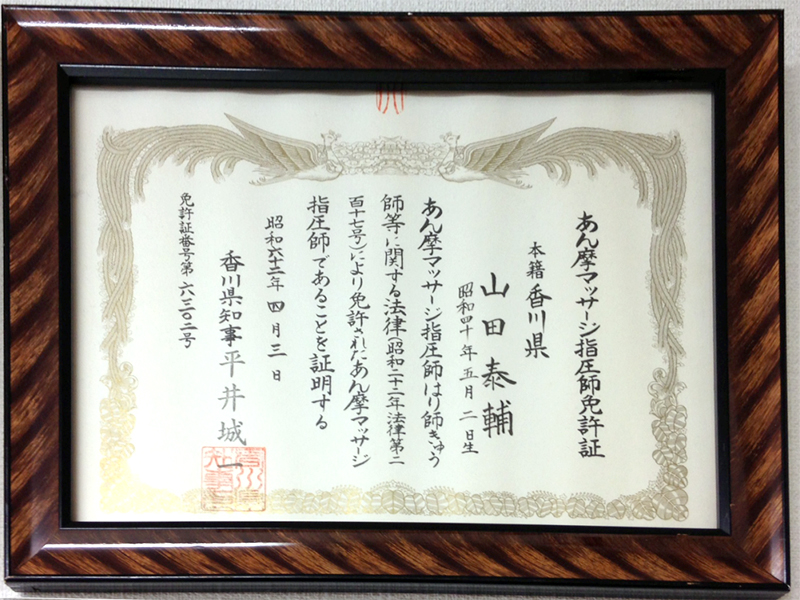 あん摩マッサージ指圧師免許証
本籍 香川県
山田泰輔
昭和四十年五月二日生
あん摩マッサージ指圧師はり師きゅう
師等に関する法律(昭和二十二年法律第二
百十七号)により免許されたあん摩マッサージ
指圧師であることを証明する
昭和六十二年四月三日
香川県知事 平井城一
免許証番号第六三〇二号